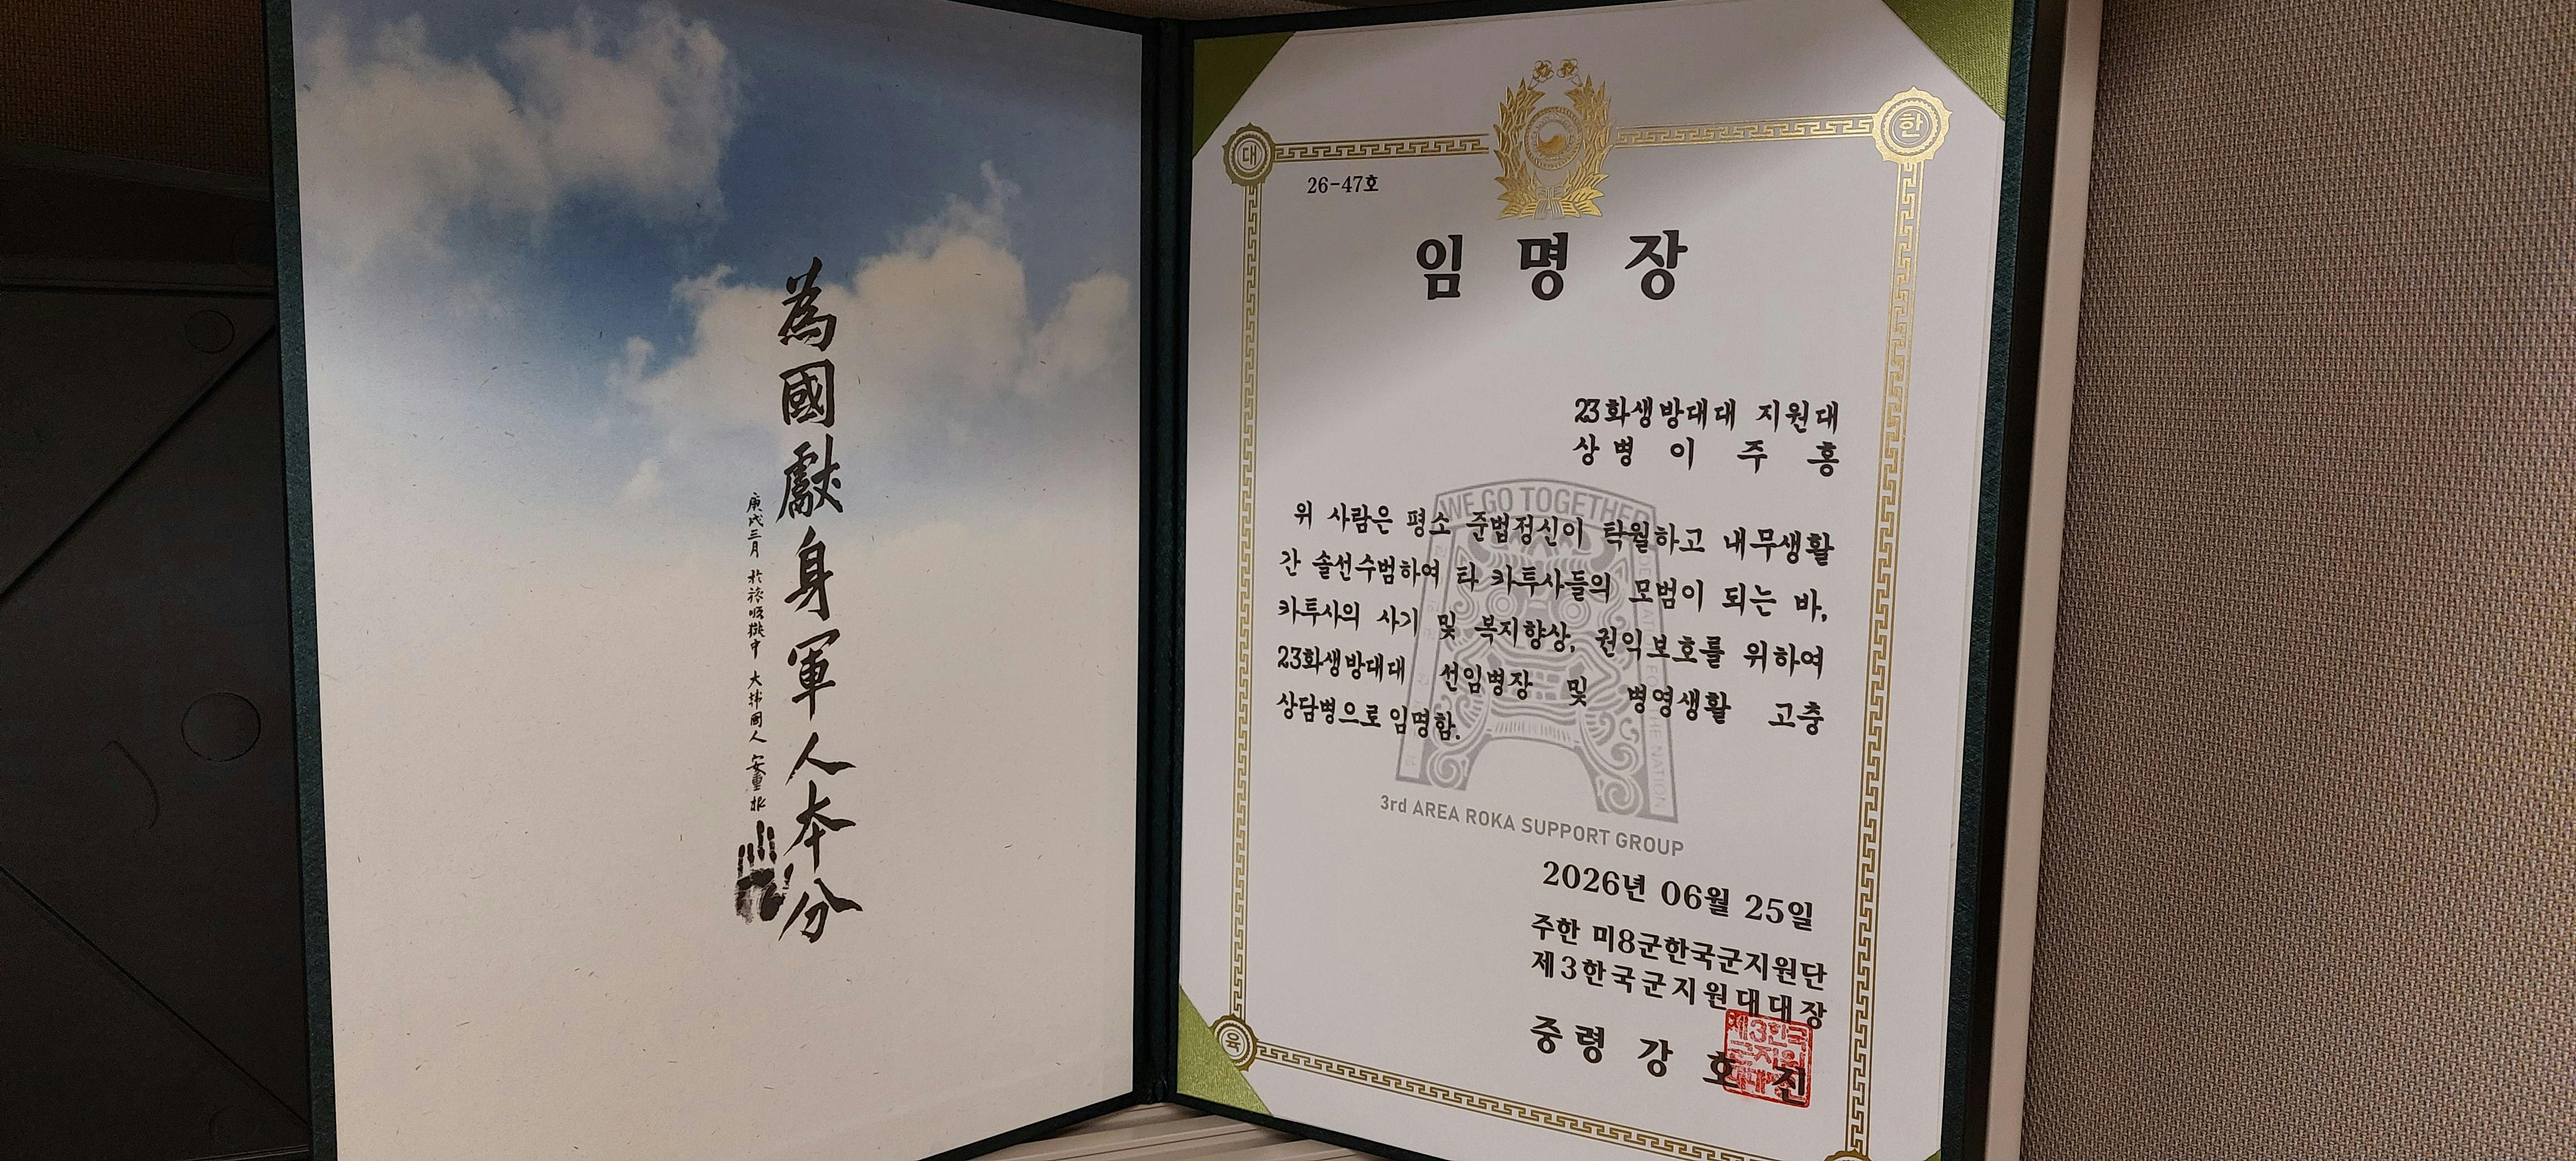 為國獻身軍人本分
庚戌三月 於旅順獄中 大韓國人 安重根
대
한
26-47호
임명장
23화생방대대 지원대
상병 이주홍
위 사람은 평소 준법정신이 탁월하고 내무생활
간 솔선수범하여 타 카투사들의 모범이 되는 바,
카투사의 사기 및 복지향상, 권익보호를 위하여
23화생방대대 선임병장 및 병영생활 고충
상담병으로 임명함.
WE GO TOGETHER
THE NATION
3rd AREA ROKA SUPPORT GROUP
2026년 06월 25일
주한 미8군한국군지원단
제3한국군지원대대장
중령 강호진
제3한국
군지원
대대장
육